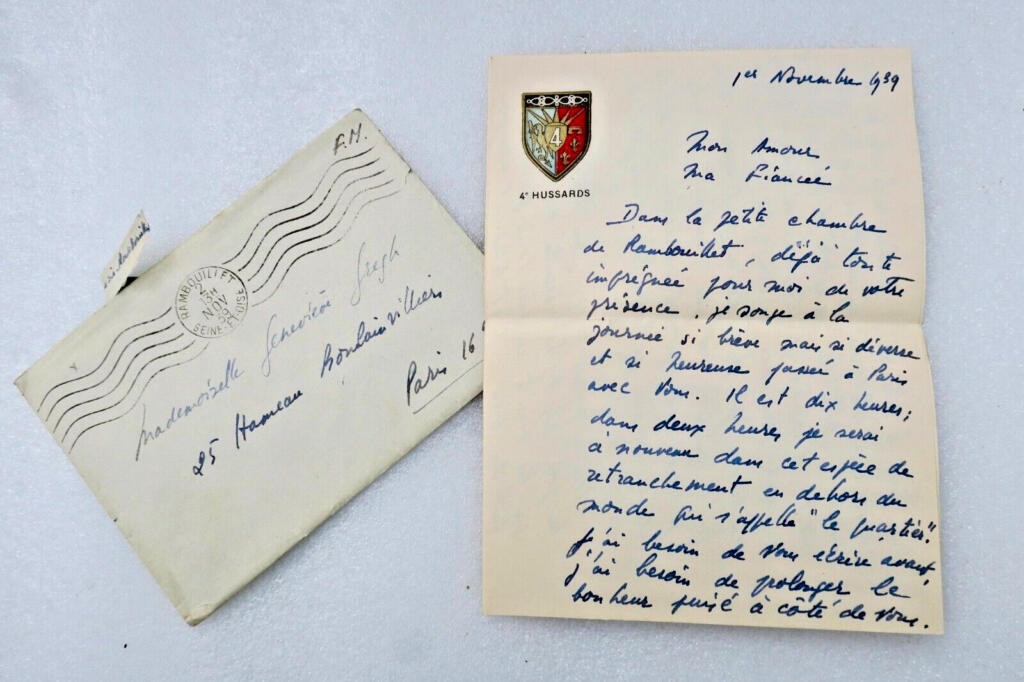 F.M.
RAMBOUILLET
2 -
13H
NOV
39
SEINE-ET-OISE
Mademoiselle Geneviève Gregh
25 Hameau Boulainvilliers
Paris 16
1er Novembre 1939
4
4e HUSSARDS
Mon Amour
Ma Fiancée
Dans la petite chambre
de Rambouillet, déjà toute
imprégnée pour moi de votre
présence, je songe à la
journée si brève mais si diverse
et si heureuse passée à Paris
avec Vous. Il est dix heures;
dans deux heures je serai
à nouveau dans cet espèce de
retranchement en dehors du
monde qui s'appelle "le quartier".
J'ai besoin de Vous écrire avant,
j'ai besoin de prolonger le
bonheur puisé à côté de Vous.